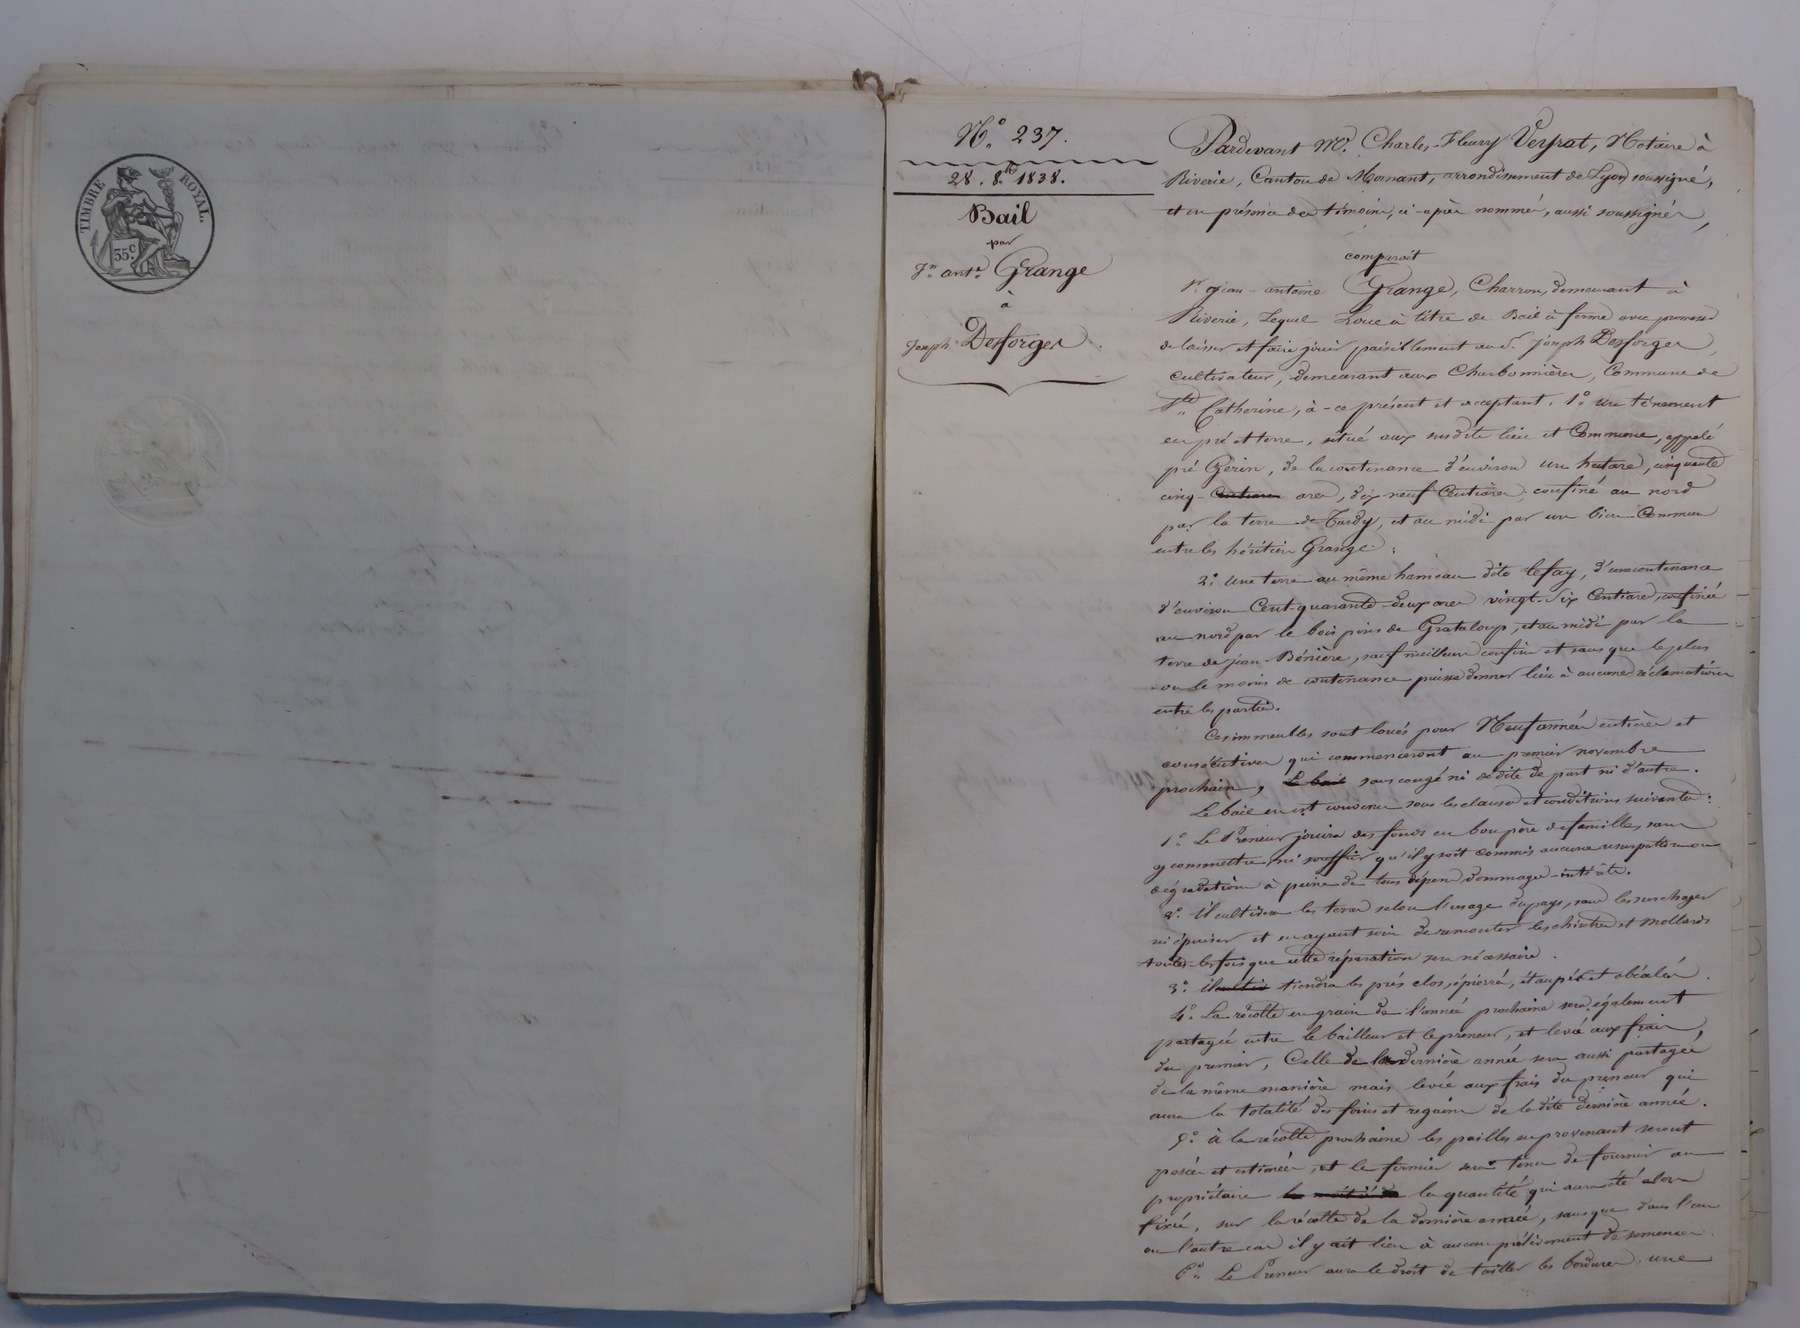 TIMBRE ROYAL.
35.c
N.o 237.
28. 8.bre 1838.
Bail
par
J.n ant.e Grange
à
Joseph Desforges
Pardevant M.e Charles-Fleury Veyrat, Notaire à
Riverie, Canton de Mornant, arrondissement de Lyon soussigné,
et en présence des témoins, ci-après nommés, aussi soussignés,
comparoit
S.r Jean-antoine Grange, Charron, demeurant à
Riverie, Lequel Loue à titre de Bail à ferme avec promesse
de laisser et faire jouir paisiblement au S.r Joseph Desforges,
cultivateur, demeurant aux Charbonnières, Commune de
S.te Catherine, à-ce présent et acceptant. 1.o un ténement
en pré et terre, situé aux susdits lieu et Commune, appelé
pré Gérin, de la contenance d'environ un hectare, cinquante
cinq-centiares ares, dix-neuf Centiares, confiné au nord
par la terre de Tardy, et au midi par un bien Commun
entre les héritiers Grange;
2.o une terre au même hameau dite lefay, d'une contenance
d'environ Cent-quarante-deux ares vingt-six Centiares, confinée
au nord par le bois pins de Grataloup, et au midi par la
terre de jean Bénière, sauf meilleurs confins et sans que le plus
ou le moins de contenance puisse donner lieu à aucunes réclamations
entre les parties.
Ces immeubles sont loués pour Neuf années entières et
consécutives qui commenceront au premier novembre
prochain, Le bail sans congé ni dédite de part ni d'autre.
Le bail en est convenu sous les clauses et conditions suivantes:
1.o Le Preneur jouira des fonds en bon père de familles sans
y commettre, ni souffrir qu'il y soit commis aucune usurpation ou
dégradation à peine de tous dépens, dommages-intérêts.
2.o il cultivera les terres selon l'usage du pays, sans les surcharger
ni épuiser et en ayant soin de remonter les chintres et mollards
toutes-les fois que cette réparation sera nécessaire.
3.o il tiendra les prés clos, épierrés, étaupés et
4.o La récolte en grains de l'année prochaine sera également
partagée entre le bailleur et le preneur, et levée aux frais,
du premier, Celle de la dernière année sera aussi partagée
de la même manière mais levée aux frais du preneur qui
aura la totalité des foins et regains de la dite dernière année.
5.o à la récolte prochaine les pailles en provenant seront
pesées et estimées, et le fermier sera tenu de fournir au
propriétaire la moitié de la quantité qui aura été alors
fixée, sur la récolte de la dernière année, sans que dans l'un
ou l'autre cas il y ait lieu à aucun prélèvement de semences.
6.o Le Preneur aura le droit de tailler les bordures, une